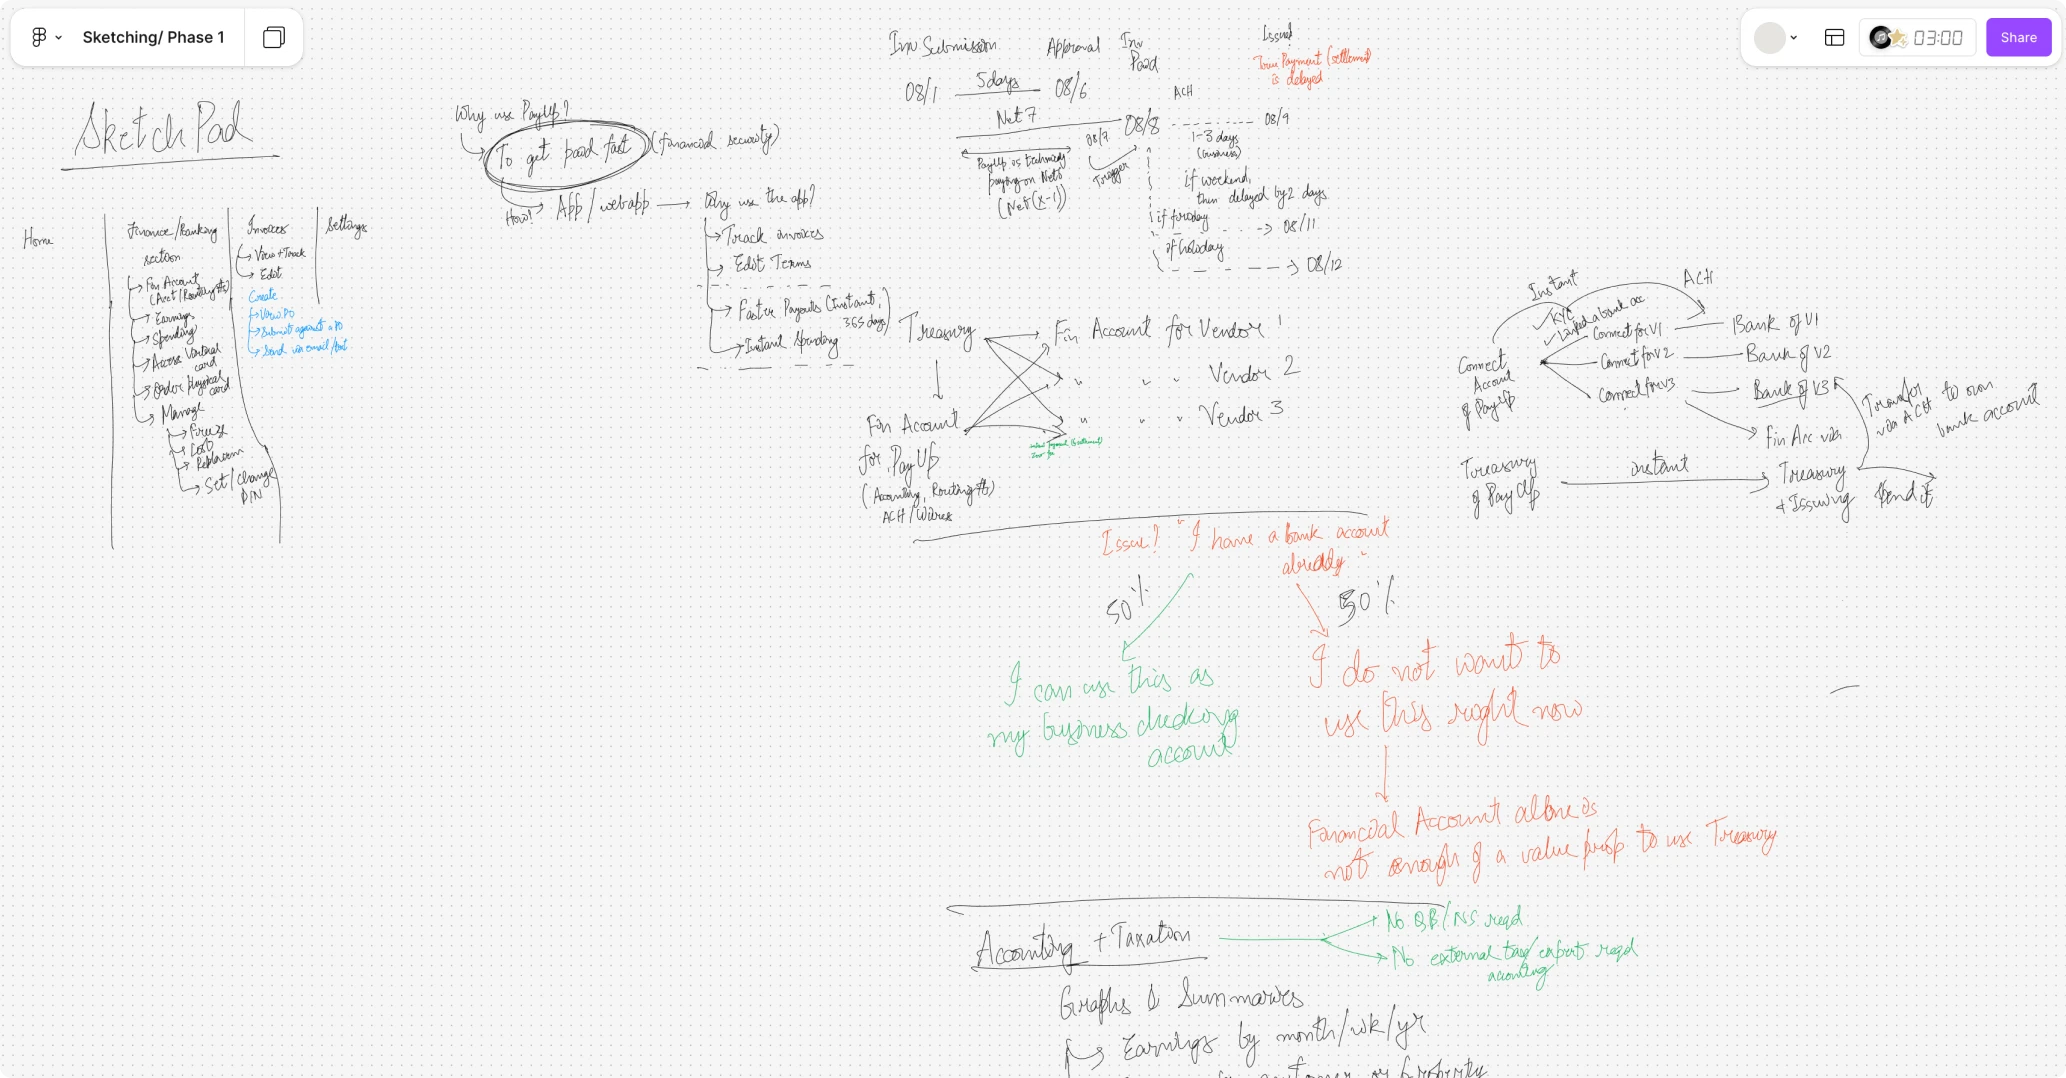 Sketching/ Phase 1
03:00
Share
SketchPad
Home
Finance/Banking
section
Fin Account
(Acct/Routing #s)
Earnings
Spending
Access Virtual
card
Order physical
card
Manage
Freeze
Lost
Set/Change
PIN
Invoices
View + Track
Edit
Create
View PO
Submit against a PO
Send via email/text
Settings
Why use PayUp?
To get paid fast (financial security)
How?
App / webapp
Why use the app?
Track invoices
Edit Terms
Faster Payouts (Instant,
365 days)
Instant Spending
Inv Submission
Approval
Inv
Paid
Issue!
Payment (settlement)
is delayed
08/1
5 days
08/6
ACH
Net 7
08/7
08/8
08/9
1-3 days
(business)
PayUp is technically
paying on Net 6
(Net(x-1))
Trigger
if weekend,
then delayed by 2 days
if friday
08/11
if holiday
08/12
Treasury
Fin Account for Vendor 1
" " " Vendor 2
" " " Vendor 3
Fin Account
for PayUp
(Accounting, Routing #s)
ACH / Wires
Instant
ACH
KYC
Linked a bank acc
Connect
Account
of PayUp
Connect for V1
Bank of V1
Connect for V2
Bank of V2
Connect for V3
Bank of V3
Fin Acc via
Treasury
+ Issuing
Transfer
via ACH to own
bank account
Treasury
of PayUp
instant
Spend it
Issue? "I have a bank account
already"
50%
50%
I can use this as
my business checking
account
I do not want to
use this right now
Financial Account alone is
not enough of a value prop to use Treasury
Accounting + Taxation
No QB/NS reqd
No external tax/ expert reqd
accounting
Graphs & Summaries
Earnings by month/wk/yr
customer or property